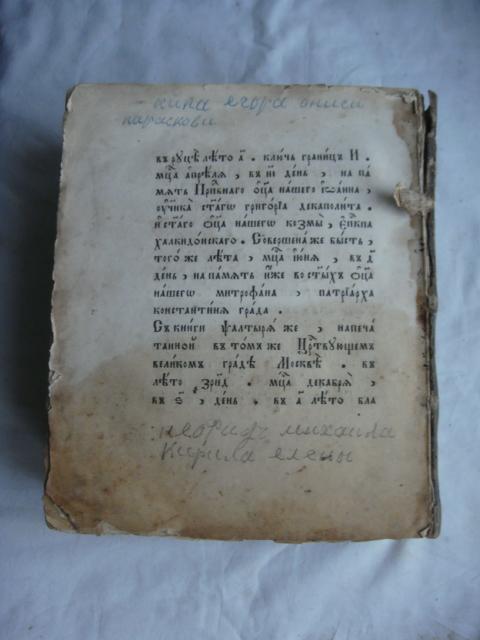 нила егора аниси
параскови
въ руцѣ лѣ́то а҃ . ключъ грани́цъ И .
мц҃а а҆прѣ́лѧ , въ и҃і де́нь , на па́
мѧть Прпⷣбнаго ѻ҆ц҃а̀ на́шегѡ І҆ѡа́нна ,
ᲂу҆чн҃ка̀ ст҃а́гѡ григо́рїа декаполи́та .
и҆ ст҃а́го ѻ҆ц҃а̀ на́шегѡ козмы̀ , є҆пⷭ҇кпа
халкидо́нскаго . Соверше́на же бы́сть ,
того́же лѣ́та , мц҃а і҆ю́нїѧ , въ д҃
де́нь , на па́мѧть и҆́же во ст҃ы́хъ ѻ҆ц҃а̀
на́шегѡ митрофа́на , патрїа́рха
константи́нѧ гра́да .
Съ кни́ги ѱалты́рѧ же , напеча́
танной въ то́мъ же Црⷭ҇твующемъ
вели́комъ гра́дѣ Москвѣ̀ . въ
лѣ́то ҂зрн҃д . мц҃а декабрѧ̀ ,
въ ѕ҃ , де́нь . въ д҃ лѣ́то бла
михаила
кирила елены